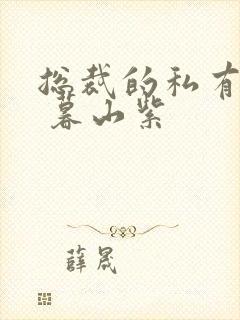 总裁的私有
暮山紫
薛晟